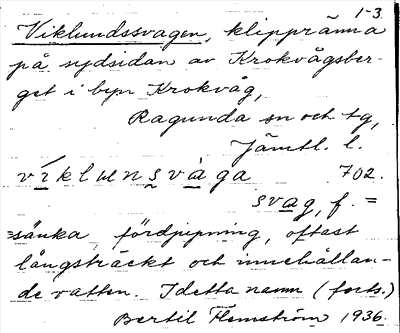 1-3.
Viklundssvagen, klippränna
på sydsidan av Krokvågsber-
get i byn Krokvåg,
Ragunda sn och tg,
Jämtl. l.
viklunsvàga 702.
svag, f. =
=sänka, fördjupning, oftast
långsträckt och innehållan-
de vatten. I detta namn (forts.)
Bertil Flemström 1936.